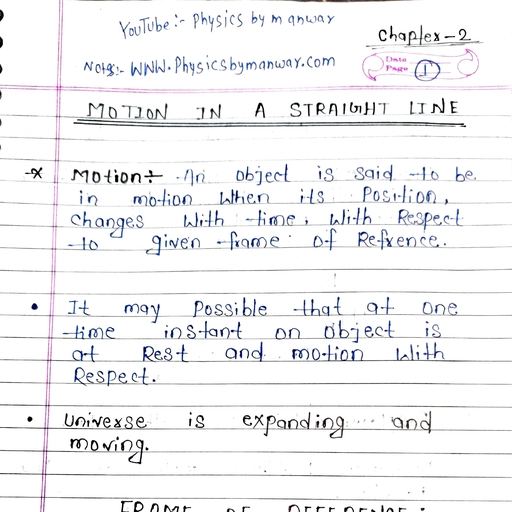 YouTube :- Physics by manwar
Chapter-2
Notes:- WWW.Physicsbymanwar.com
Date
Page 1
MOTION IN A STRAIGHT LINE
Motion÷ An object is said to be
in motion When its Position,
changes With time, With Respect
to given frame of Refrence.
• It may Possible that at one
time instant on object is
at Rest and motion With
Respect.
• Universe is expanding and
moving.
FRAME OF REFERENCE: